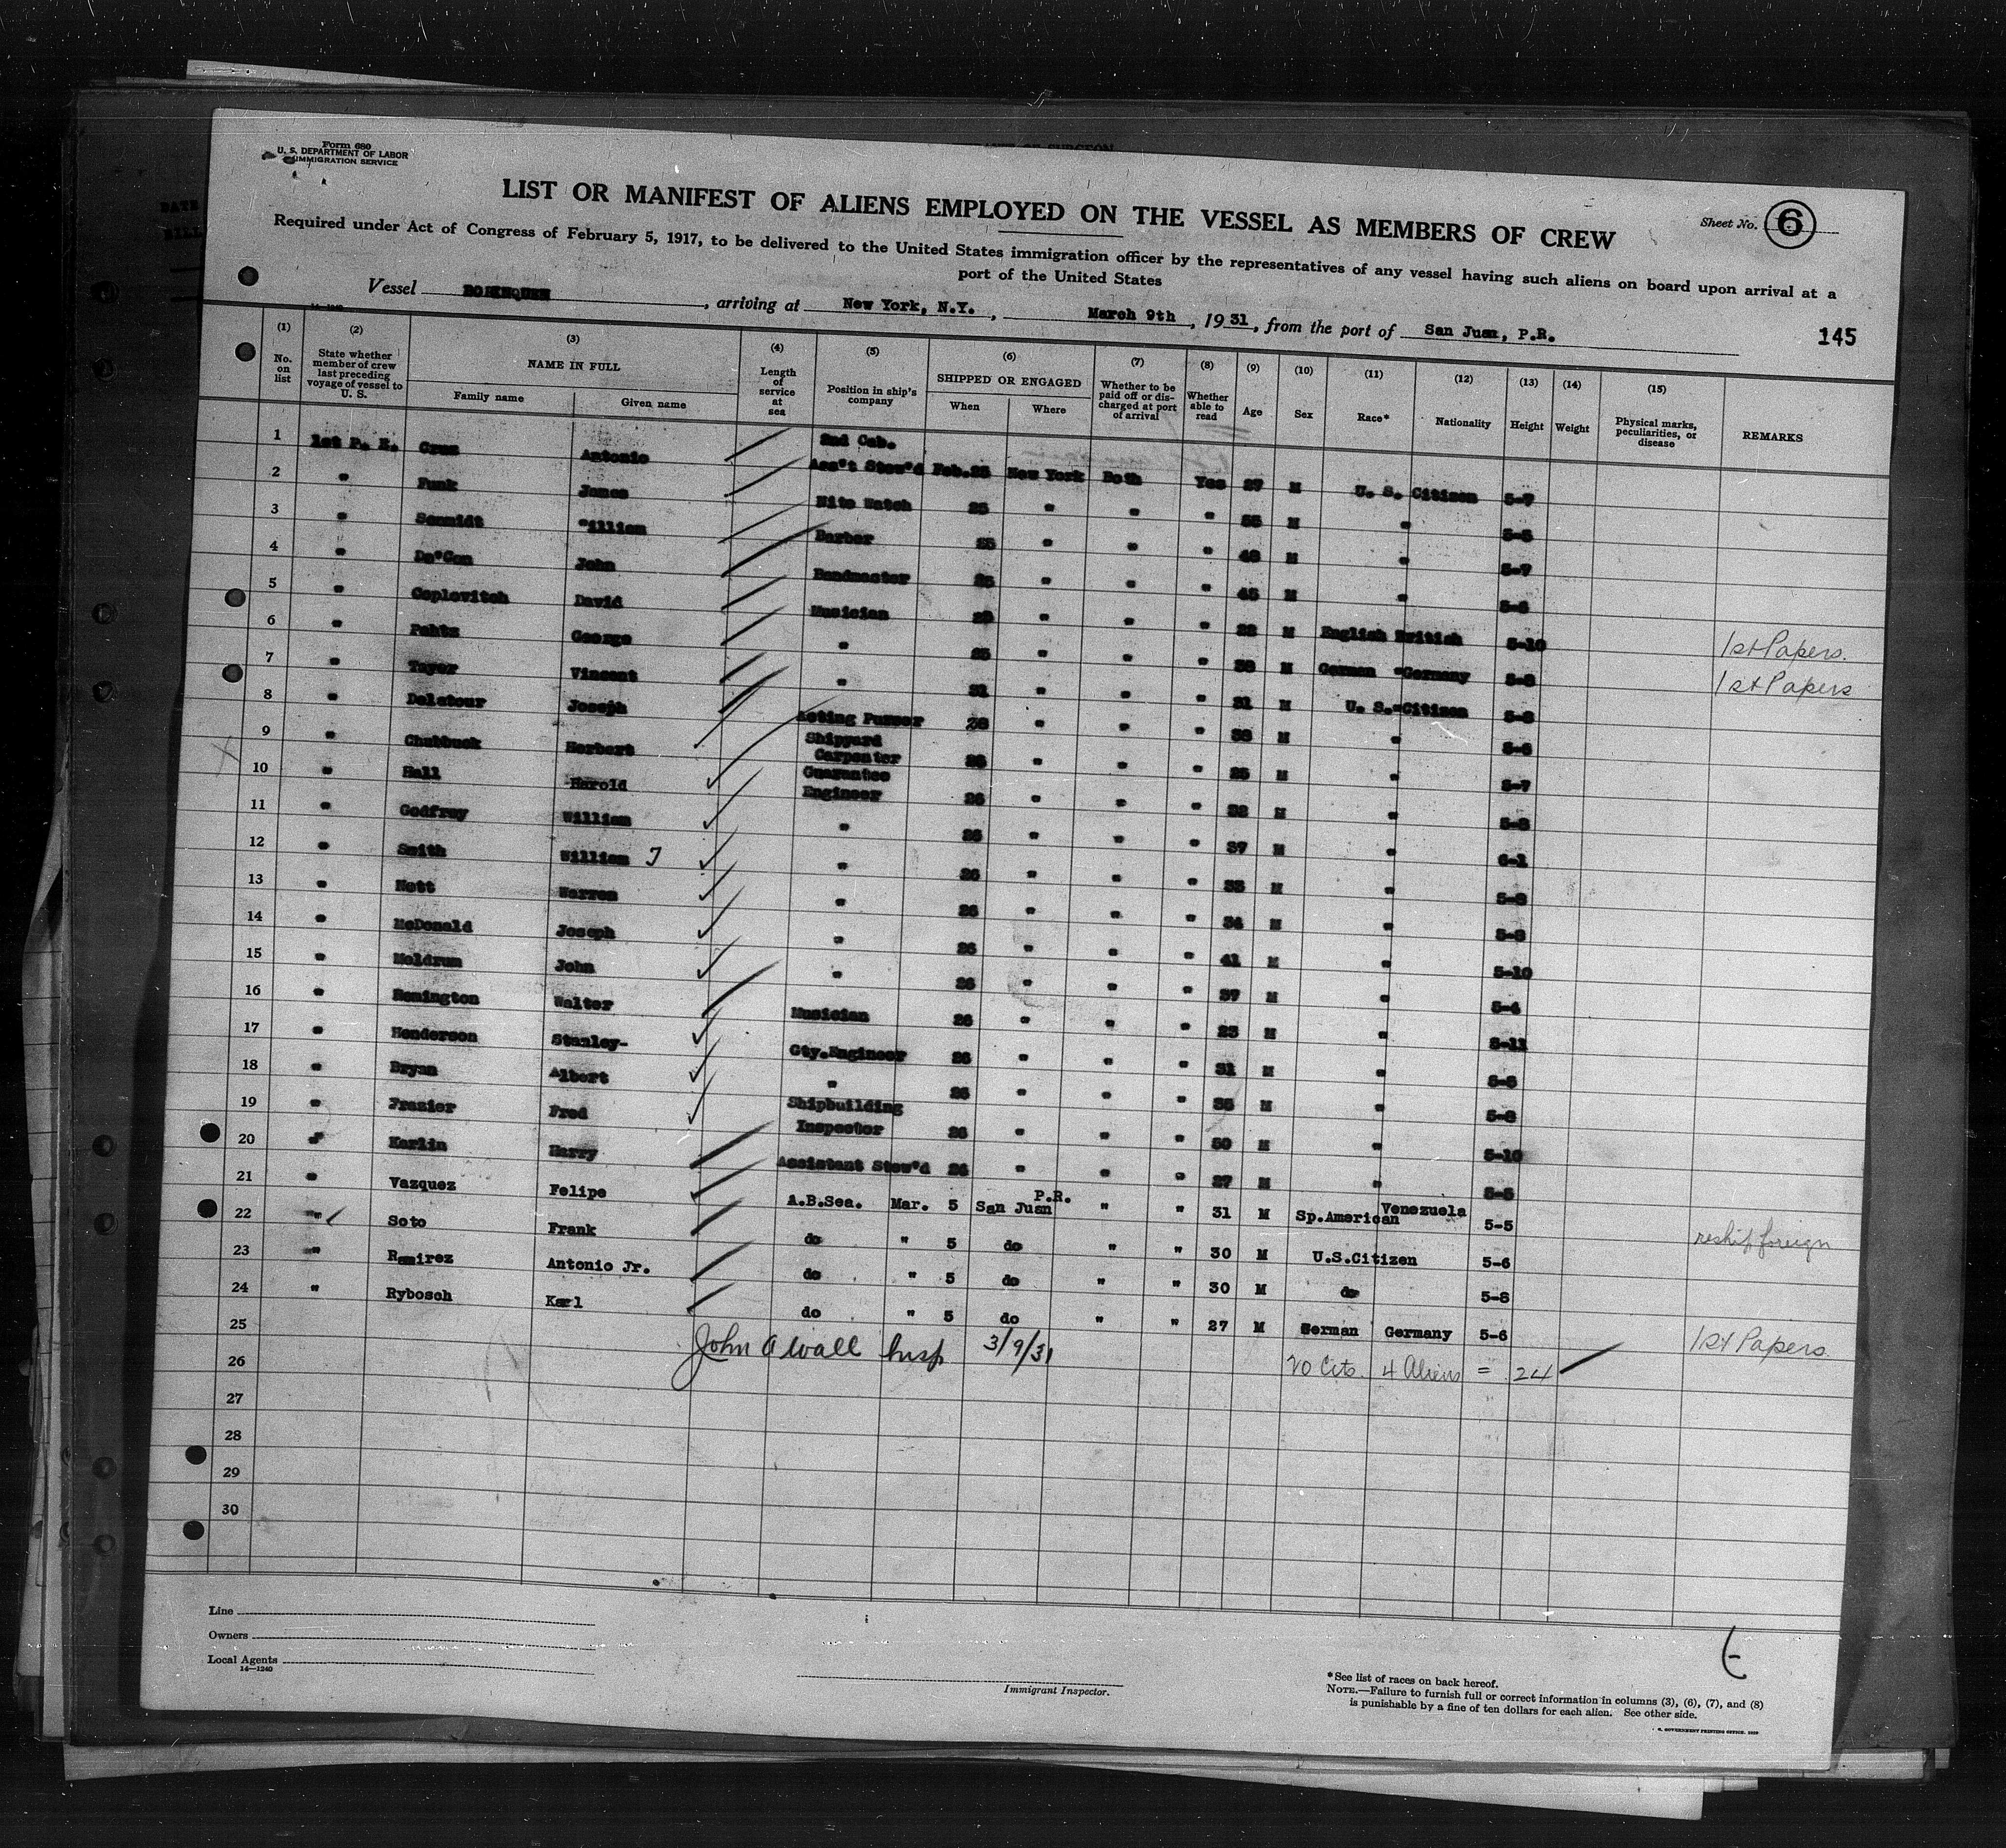 Form 680
U. S. DEPARTMENT OF LABOR
IMMIGRATION SERVICE
LIST OR MANIFEST OF ALIENS EMPLOYED ON THE VESSEL AS MEMBERS OF CREW
Sheet No. 6
Required under Act of Congress of February 5, 1917, to be delivered to the United States immigration officer by the representatives of any vessel having such aliens on board upon arrival at a
port of the United States
Vessel BORINQUEN, arriving at New York, N.Y., March 9th, 1931, from the port of San Juan, P.R.
145
(1) (2) (3) (4) (5) (6) (7) (8) (9) (10) (11) (12) (13) (14) (15)
No. on list
State whether member of crew last preceding voyage of vessel to U. S.
NAME IN FULL
Family name Given name
Length of service at sea
Position in ship's company
SHIPPED OR ENGAGED
When Where
Whether to be paid off or discharged at port of arrival
Whether able to read
Age Sex Race* Nationality Height Weight
Physical marks, peculiarities, or disease
REMARKS
1 Antonio 2nd Cab. Ass't Stew'd Feb.25 New York Both Yes 27 M U. S. Citizen 5-7
2 " Funk James Nite Watch 25 " " " M " 
3 " Schmidt William Barber 25 " " " 48 M " 5-7
4 " John Bandmaster 25 " " " 45 M "
5 " Coplovitch David Musician " " " M English British 5-10 1st Papers.
6 " George " 25 " " " M German Germany 1st Papers
7 " Vincent " 31 M U. S. Citizen
8 " Delatour Joseph Acting Purser " " " M "
9 " Chubbuck Herbert Shipyard Carpenter 26 " " " 25 M " 5-7
10 " Hall Harold Guarantee Engineer 26 " " " M "
11 " Godfrey William " 26 " " " 37 M " 6-1
12 " Smith William J " 26 " " " M "
13 " Warren " 26 " " " 34 M "
14 " McDonald Joseph " 26 " " " 41 M " 5-10
15 " Meldrum John " 26 " " " 37 M " 5-4
16 " Walter Musician 26 " " " 23 M " 5-11
17 " Henderson Stanley- Gty.Engineer 26 " " " 31 M "
18 " Bryan Albert " 26 " " " M "
19 " Frazier Fred Shipbuilding Inspector 26 " " " 50 M " 5-10
20 " Harry Assistant Stew'd 26 " " " 27 M " 5-5
21 " Vazquez Felipe A.B.Sea. Mar. 5 San Juan P.R. " " 31 M Sp.American Venezuela 5-5 reship foreign
22 " Soto Frank do " 5 do " " 30 M U.S.Citizen 5-6
23 " Ramirez Antonio Jr. do " 5 do " " 30 M do 5-8
24 " Rybosch Karl do " 5 do " " 27 M German Germany 5-6 1st Papers.
25 John A Wall Insp 3/9/31
20 Cits. 4 Aliens = 24
26
27
28
29
30
Line
Owners
Local Agents
14—1240
Immigrant Inspector.
*See list of races on back hereof.
NOTE.—Failure to furnish full or correct information in columns (3), (6), (7), and (8)
is punishable by a fine of ten dollars for each alien. See other side.
GOVERNMENT PRINTING OFFICE